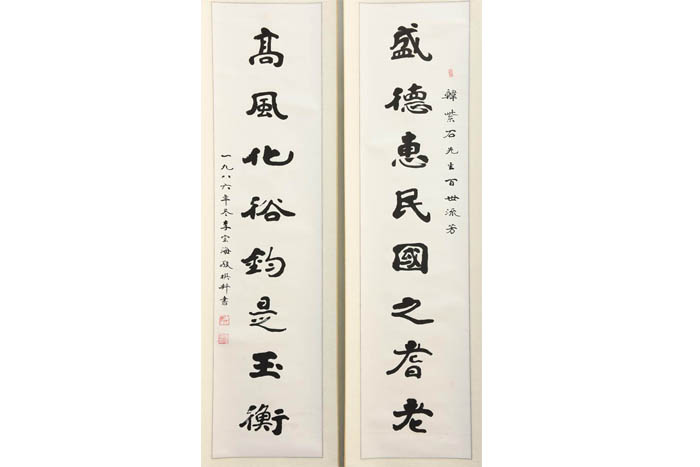 韓紫石先生百世流芳
盛德惠民國之耆老
高風化裕鈞是玉衡
一九八六年冬李宝海敬撰并書